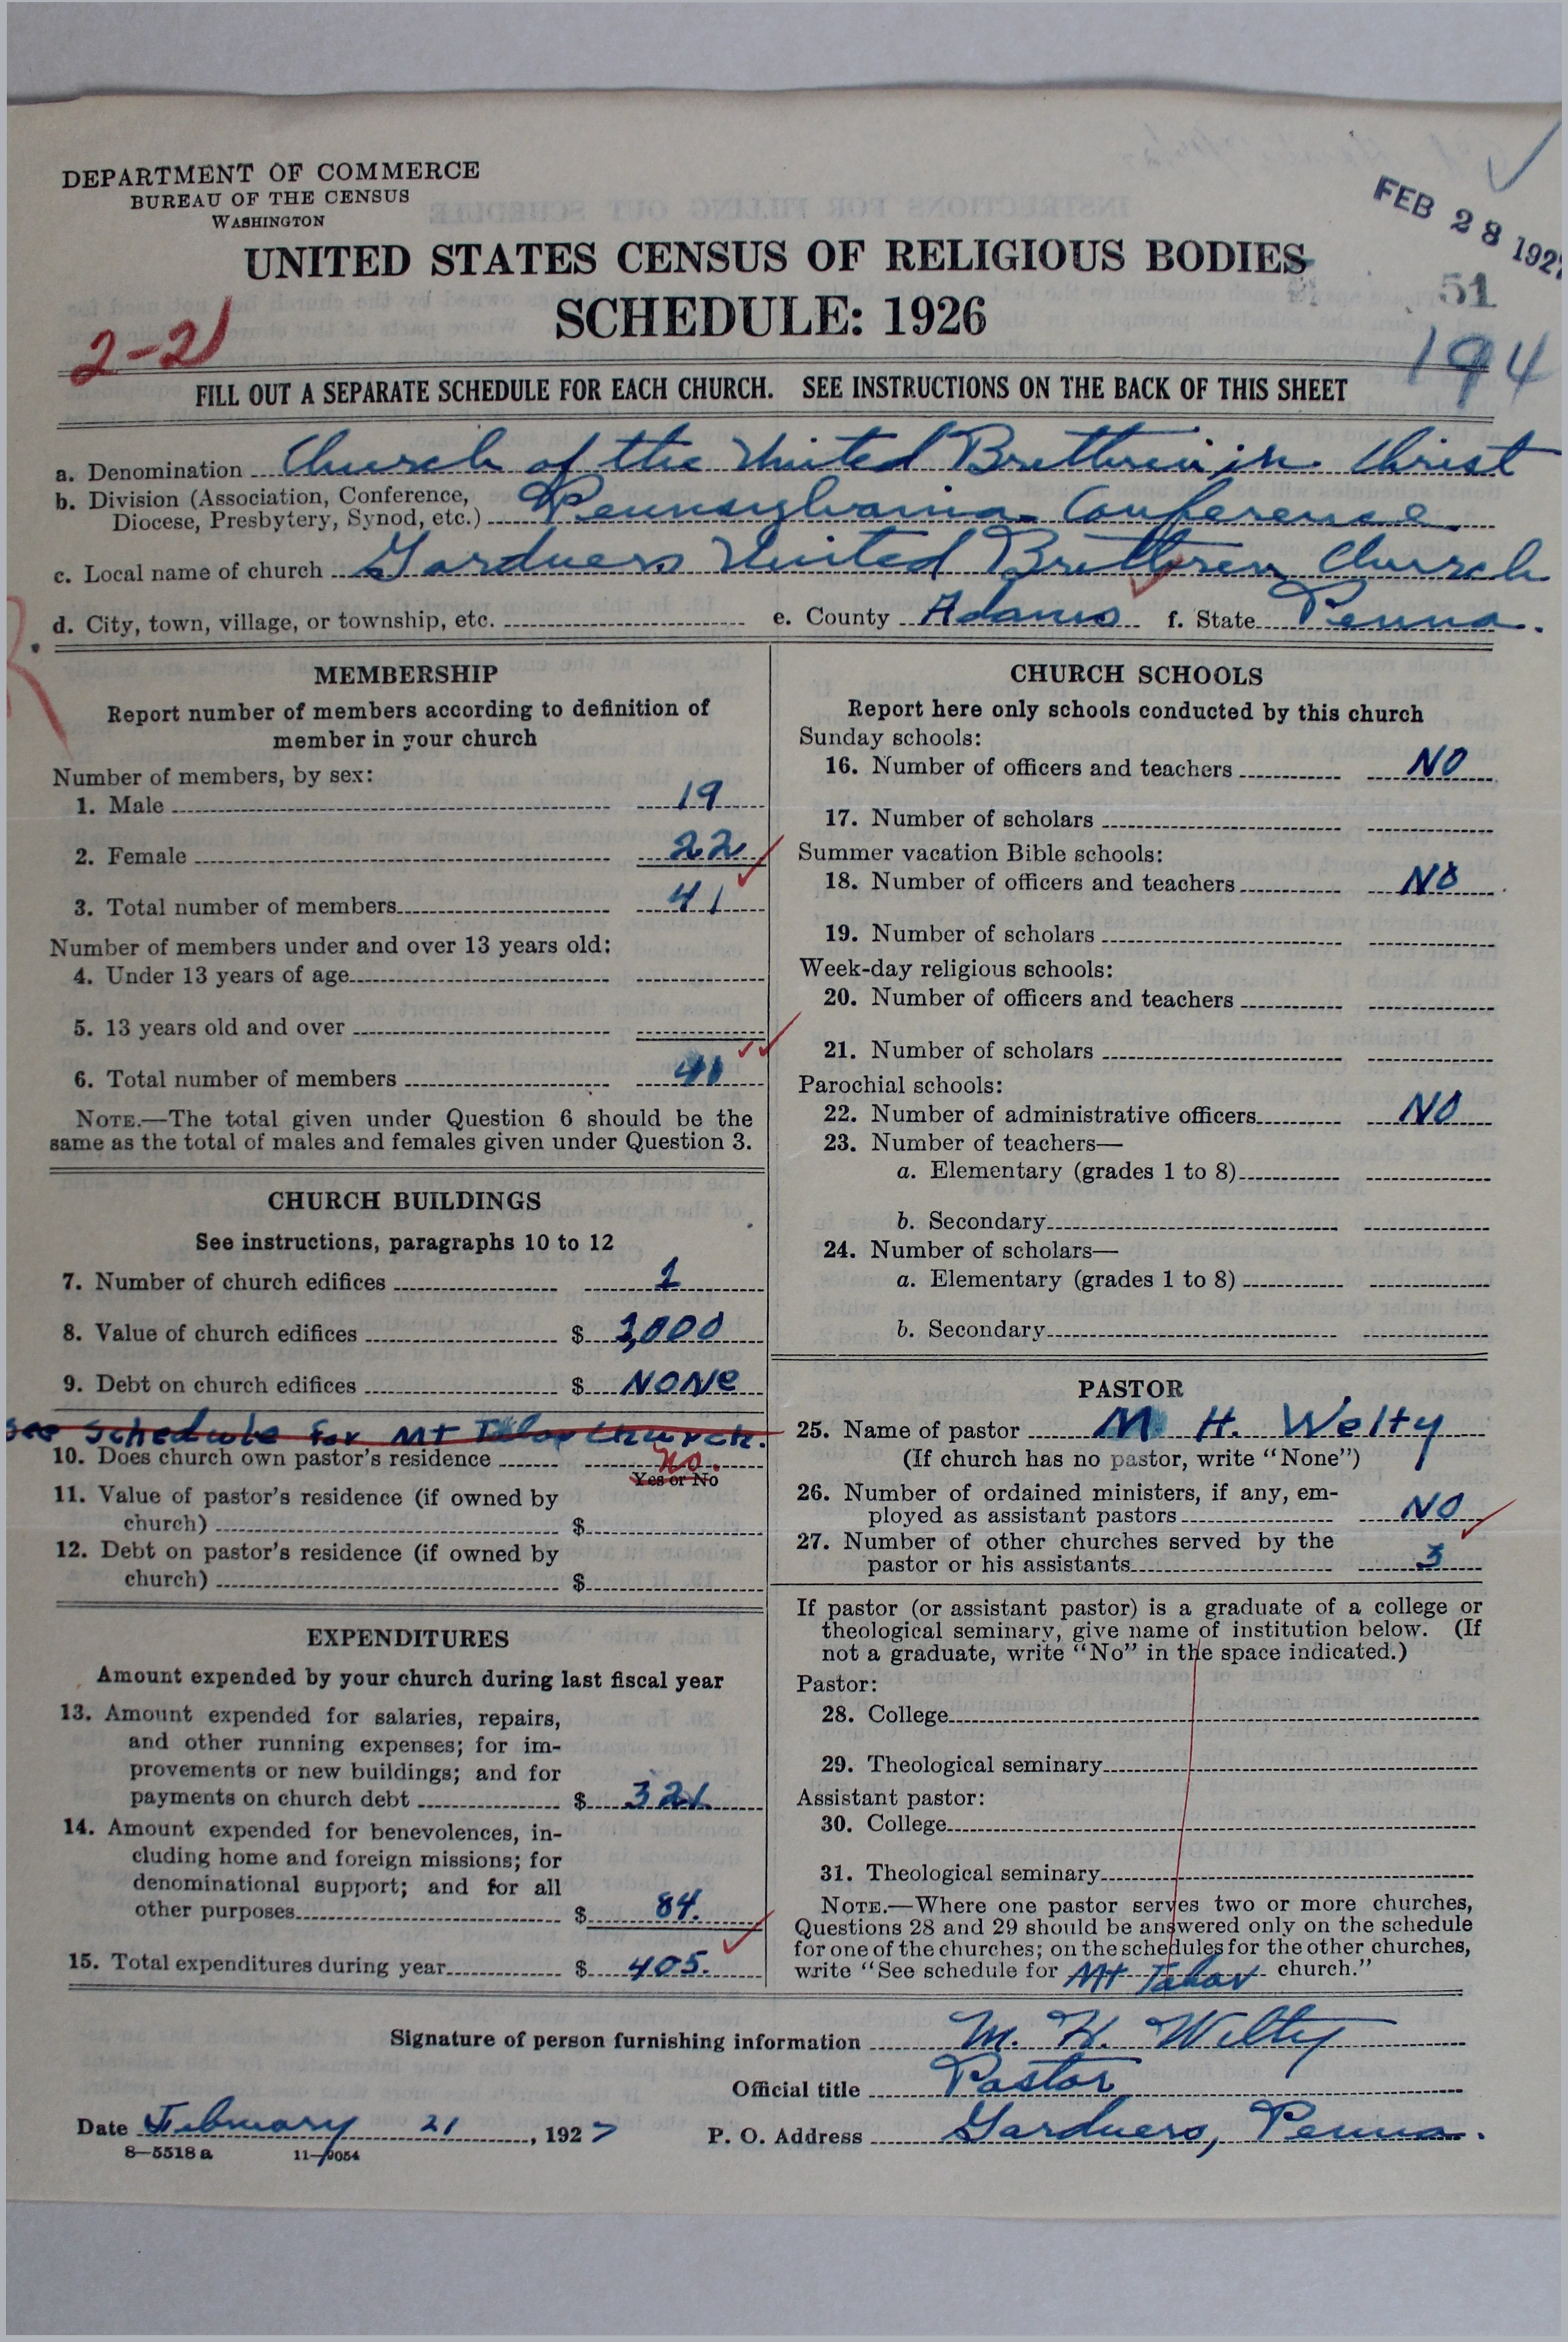 DEPARTMENT OF COMMERCE
BUREAU OF THE CENSUS
WASHINGTON
FEB 28 1927
UNITED STATES CENSUS OF RELIGIOUS BODIES
51
SCHEDULE: 1926
2-21
194
FILL OUT A SEPARATE SCHEDULE FOR EACH CHURCH. SEE INSTRUCTIONS ON THE BACK OF THIS SHEET
a. Denomination Church of the United Brethren in Christ
b. Division (Association, Conference, Diocese, Presbytery, Synod, etc.) Pennsylvania Conference.
c. Local name of church Gardners United Brethren Church
d. City, town, village, or township, etc. e. County Adams f. State Penna.
MEMBERSHIP
Report number of members according to definition of
member in your church
Number of members, by sex:
1. Male 19
2. Female 22
3. Total number of members 41
Number of members under and over 13 years old:
4. Under 13 years of age
5. 13 years old and over
6. Total number of members 41
NOTE.—The total given under Question 6 should be the
same as the total of males and females given under Question 3.
CHURCH BUILDINGS
See instructions, paragraphs 10 to 12
7. Number of church edifices 1
8. Value of church edifices $ 3,000
9. Debt on church edifices $ NONe
See Schedule for Mt Tabor Church.
10. Does church own pastor's residence No.
Yes or No
11. Value of pastor's residence (if owned by
church) $
12. Debt on pastor's residence (if owned by
church) $
EXPENDITURES
Amount expended by your church during last fiscal year
13. Amount expended for salaries, repairs,
and other running expenses; for im-
provements or new buildings; and for
payments on church debt $ 321.
14. Amount expended for benevolences, in-
cluding home and foreign missions; for
denominational support; and for all
other purposes $ 84.
15. Total expenditures during year $ 405.
CHURCH SCHOOLS
Report here only schools conducted by this church
Sunday schools:
16. Number of officers and teachers NO
17. Number of scholars
Summer vacation Bible schools:
18. Number of officers and teachers NO
19. Number of scholars
Week-day religious schools:
20. Number of officers and teachers
21. Number of scholars
Parochial schools:
22. Number of administrative officers NO
23. Number of teachers—
a. Elementary (grades 1 to 8)
b. Secondary
24. Number of scholars—
a. Elementary (grades 1 to 8)
b. Secondary
PASTOR
25. Name of pastor M. H. Welty
(If church has no pastor, write "None")
26. Number of ordained ministers, if any, em-
ployed as assistant pastors NO
27. Number of other churches served by the
pastor or his assistants 3
If pastor (or assistant pastor) is a graduate of a college or
theological seminary, give name of institution below. (If
not a graduate, write "No" in the space indicated.)
Pastor:
28. College
29. Theological seminary
Assistant pastor:
30. College
31. Theological seminary
NOTE.—Where one pastor serves two or more churches,
Questions 28 and 29 should be answered only on the schedule
for one of the churches; on the schedules for the other churches,
write "See schedule for Mt Tabor church."
Signature of person furnishing information M. H. Welty
Official title Pastor
Date February 21, 1927 P. O. Address Gardners, Penna.
8—5518 a 11—9054